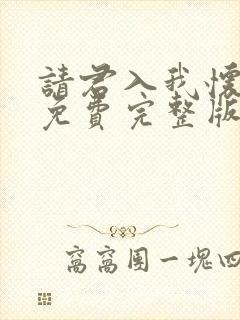 請君入我懷
免費完整版
窩窩團一塊四